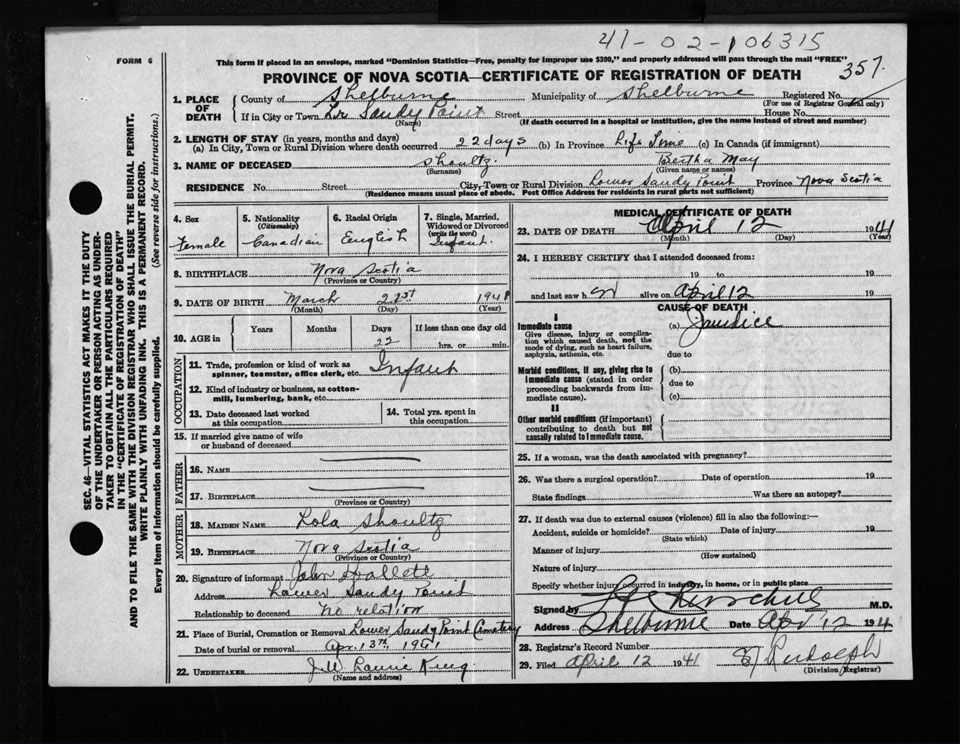 41-02-106315
FORM 6
This form if placed in an envelope, marked "Dominion Statistics—Free, penalty for improper use $300," and properly addressed will pass through the mail "FREE"
PROVINCE OF NOVA SCOTIA—CERTIFICATE OF REGISTRATION OF DEATH
357
1. PLACE OF DEATH
County of Shelburne Municipality of Shelburne Registered No.
(For use of Registrar General only)
If in City or Town Lr. Sandy Point Street House No.
(Name) (If death occurred in a hospital or institution, give the name instead of street and number)
2. LENGTH OF STAY (in years, months and days)
(a) In City, Town or Rural Division where death occurred 22 days (b) In Province Life Time (c) In Canada (if immigrant)
3. NAME OF DECEASED Shoultz Bertha May
(Surname) (Given name or names)
RESIDENCE No. Street City, Town or Rural Division Lower Sandy Point Province Nova Scotia
(Residence means usual place of abode. Post Office Address for residents in rural parts not sufficient)
4. Sex
Female
5. Nationality
(Citizenship)
Canadian
6. Racial Origin
English
7. Single, Married,
Widowed or Divorced
(write the word)
Infant.
8. BIRTHPLACE Nova Scotia
(Province or Country)
9. DATE OF BIRTH March 21st 1941
(Month) (Day) (Year)
10. AGE in
Years Months Days If less than one day old
22 hrs. or min.
OCCUPATION
11. Trade, profession or kind of work as
spinner, teamster, office clerk, etc. Infant
12. Kind of industry or business, as cotton-
mill, lumbering, bank, etc.
13. Date deceased last worked
at this occupation
14. Total yrs. spent in
this occupation
15. If married give name of wife
or husband of deceased
FATHER
16. NAME
17. BIRTHPLACE
(Province or Country)
MOTHER
18. MAIDEN NAME Lola Shoultz
19. BIRTHPLACE Nova Scotia
(Province or Country)
20. Signature of informant John Hallett
Address Lower Sandy Point
Relationship to deceased no relation
21. Place of Burial, Cremation or Removal Lower Sandy Point Cemetery
Date of burial or removal Apr. 13th, 1941
22. UNDERTAKER King
(Name and address)
MEDICAL CERTIFICATE OF DEATH
23. DATE OF DEATH April 12 1941
(Month) (Day) (Year)
24. I HEREBY CERTIFY that I attended deceased from:
19 to 19
and last saw h er alive on April 12 19
CAUSE OF DEATH
I
Immediate cause (a) Jaundice
Give disease, injury or complica-
tion which caused death, not the
mode of dying, such as heart failure,
asphyxia, asthenia, etc.
due to
Morbid conditions, if any, giving rise to
immediate cause (stated in order
proceeding backwards from im-
mediate cause).
(b)
due to
(c)
II
Other morbid conditions (if important)
contributing to death but not
causally related to immediate cause.
25. If a woman, was the death associated with pregnancy?
26. Was there a surgical operation? Date of operation 19
State findings Was there an autopsy?
27. If death was due to external causes (violence) fill in also the following:—
Accident, suicide or homicide? Date of injury 19
(State which)
Manner of injury
(How sustained)
Nature of injury
Specify whether injury occurred in industry, in home, or in public place
Signed by M.D.
Address Shelburne Date Apr 12 194
28. Registrar's Record Number
29. Filed April 12 1941 Rudolph
(Division Registrar)
SEC. 46—VITAL STATISTICS ACT MAKES IT THE DUTY
OF THE UNDERTAKER OR PERSON ACTING AS UNDER-
TAKER TO OBTAIN ALL THE PARTICULARS REQUIRED
IN THE "CERTIFICATE OF REGISTRATION OF DEATH"
AND TO FILE THE SAME WITH THE DIVISION REGISTRAR WHO SHALL ISSUE THE BURIAL PERMIT.
WRITE PLAINLY WITH UNFADING INK. THIS IS A PERMANENT RECORD.
Every item of information should be carefully supplied. (See reverse side for instructions.)